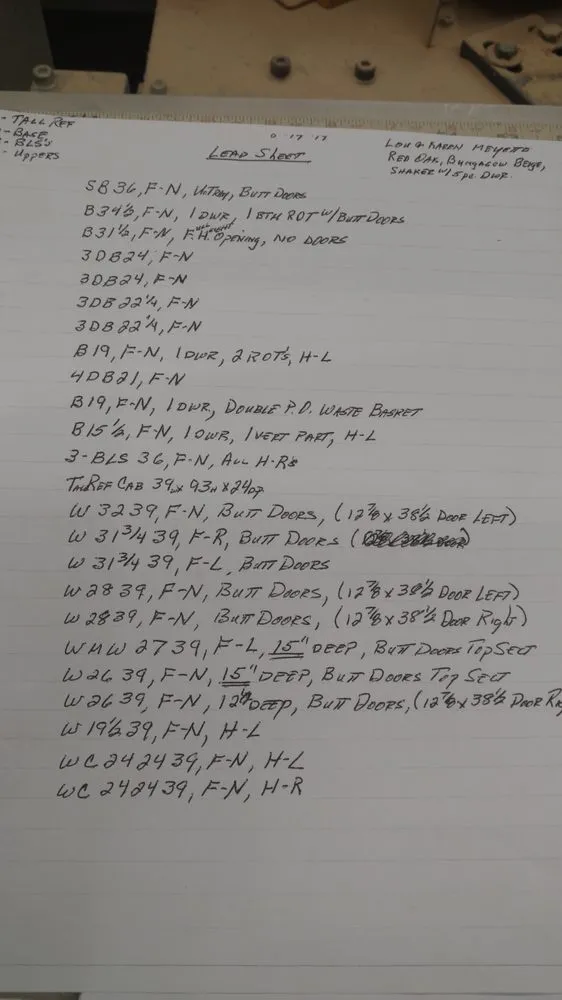 - TALL REF
- BASE
- BLS's
- Uppers
17 17
LEAD SHEET
LOU & KAREN
RED OAK, BUNGALOW BEIGE,
SHAKER W/ 5pc DWR.
SB 36, F-N, BUTT DOORS
B34½, F-N, 1 DWR, 1 BTM ROT W/ BUTT DOORS
B31½, F-N, F.H. Opening, NO DOORS
3DB24, F-N
3DB24, F-N
3DB22¼, F-N
3DB22¼, F-N
B19, F-N, 1 DWR, 2 ROT's, H-L
4DB21, F-N
B19, F-N, 1 DWR, DOUBLE P.O. WASTE BASKET
B15½, F-N, 1 DWR, 1 VERT PART, H-L
3-BLS 36, F-N, ALL H-R's
REF CAB 39 x 93H x 24DP
W 3239, F-N, BUTT DOORS, (12⅞ x 38½ DOOR LEFT)
W 31¾ 39, F-R, BUTT DOORS
W 31¾ 39, F-L, BUTT DOORS
W 2839, F-N, BUTT DOORS, (12⅞ x 38½ DOOR LEFT)
W 2839, F-N, BUTT DOORS, (12⅞ x 38½ DOOR Right)
WMW 2739, F-L, 15" DEEP, BUTT DOORS TOP SECT
W2639, F-N, 15" DEEP, BUTT DOORS TOP SECT
W2639, F-N, DEEP, BUTT DOORS, (12⅞ x 38½ DOOR
W 19½ 39, F-N, H-L
WC 242439, F-N, H-L
WC 242439, F-N, H-R